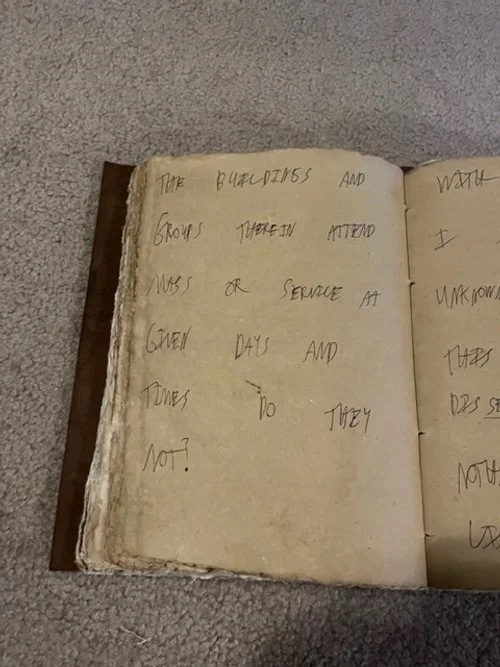 THE BUILDINGS AND
GROUPS THEREIN ATTEND
MASS OR SERVICE AT
GIVEN DAYS AND
TIMES DO THEY
NOT?
WITH
I
UNKNOWN
THIS